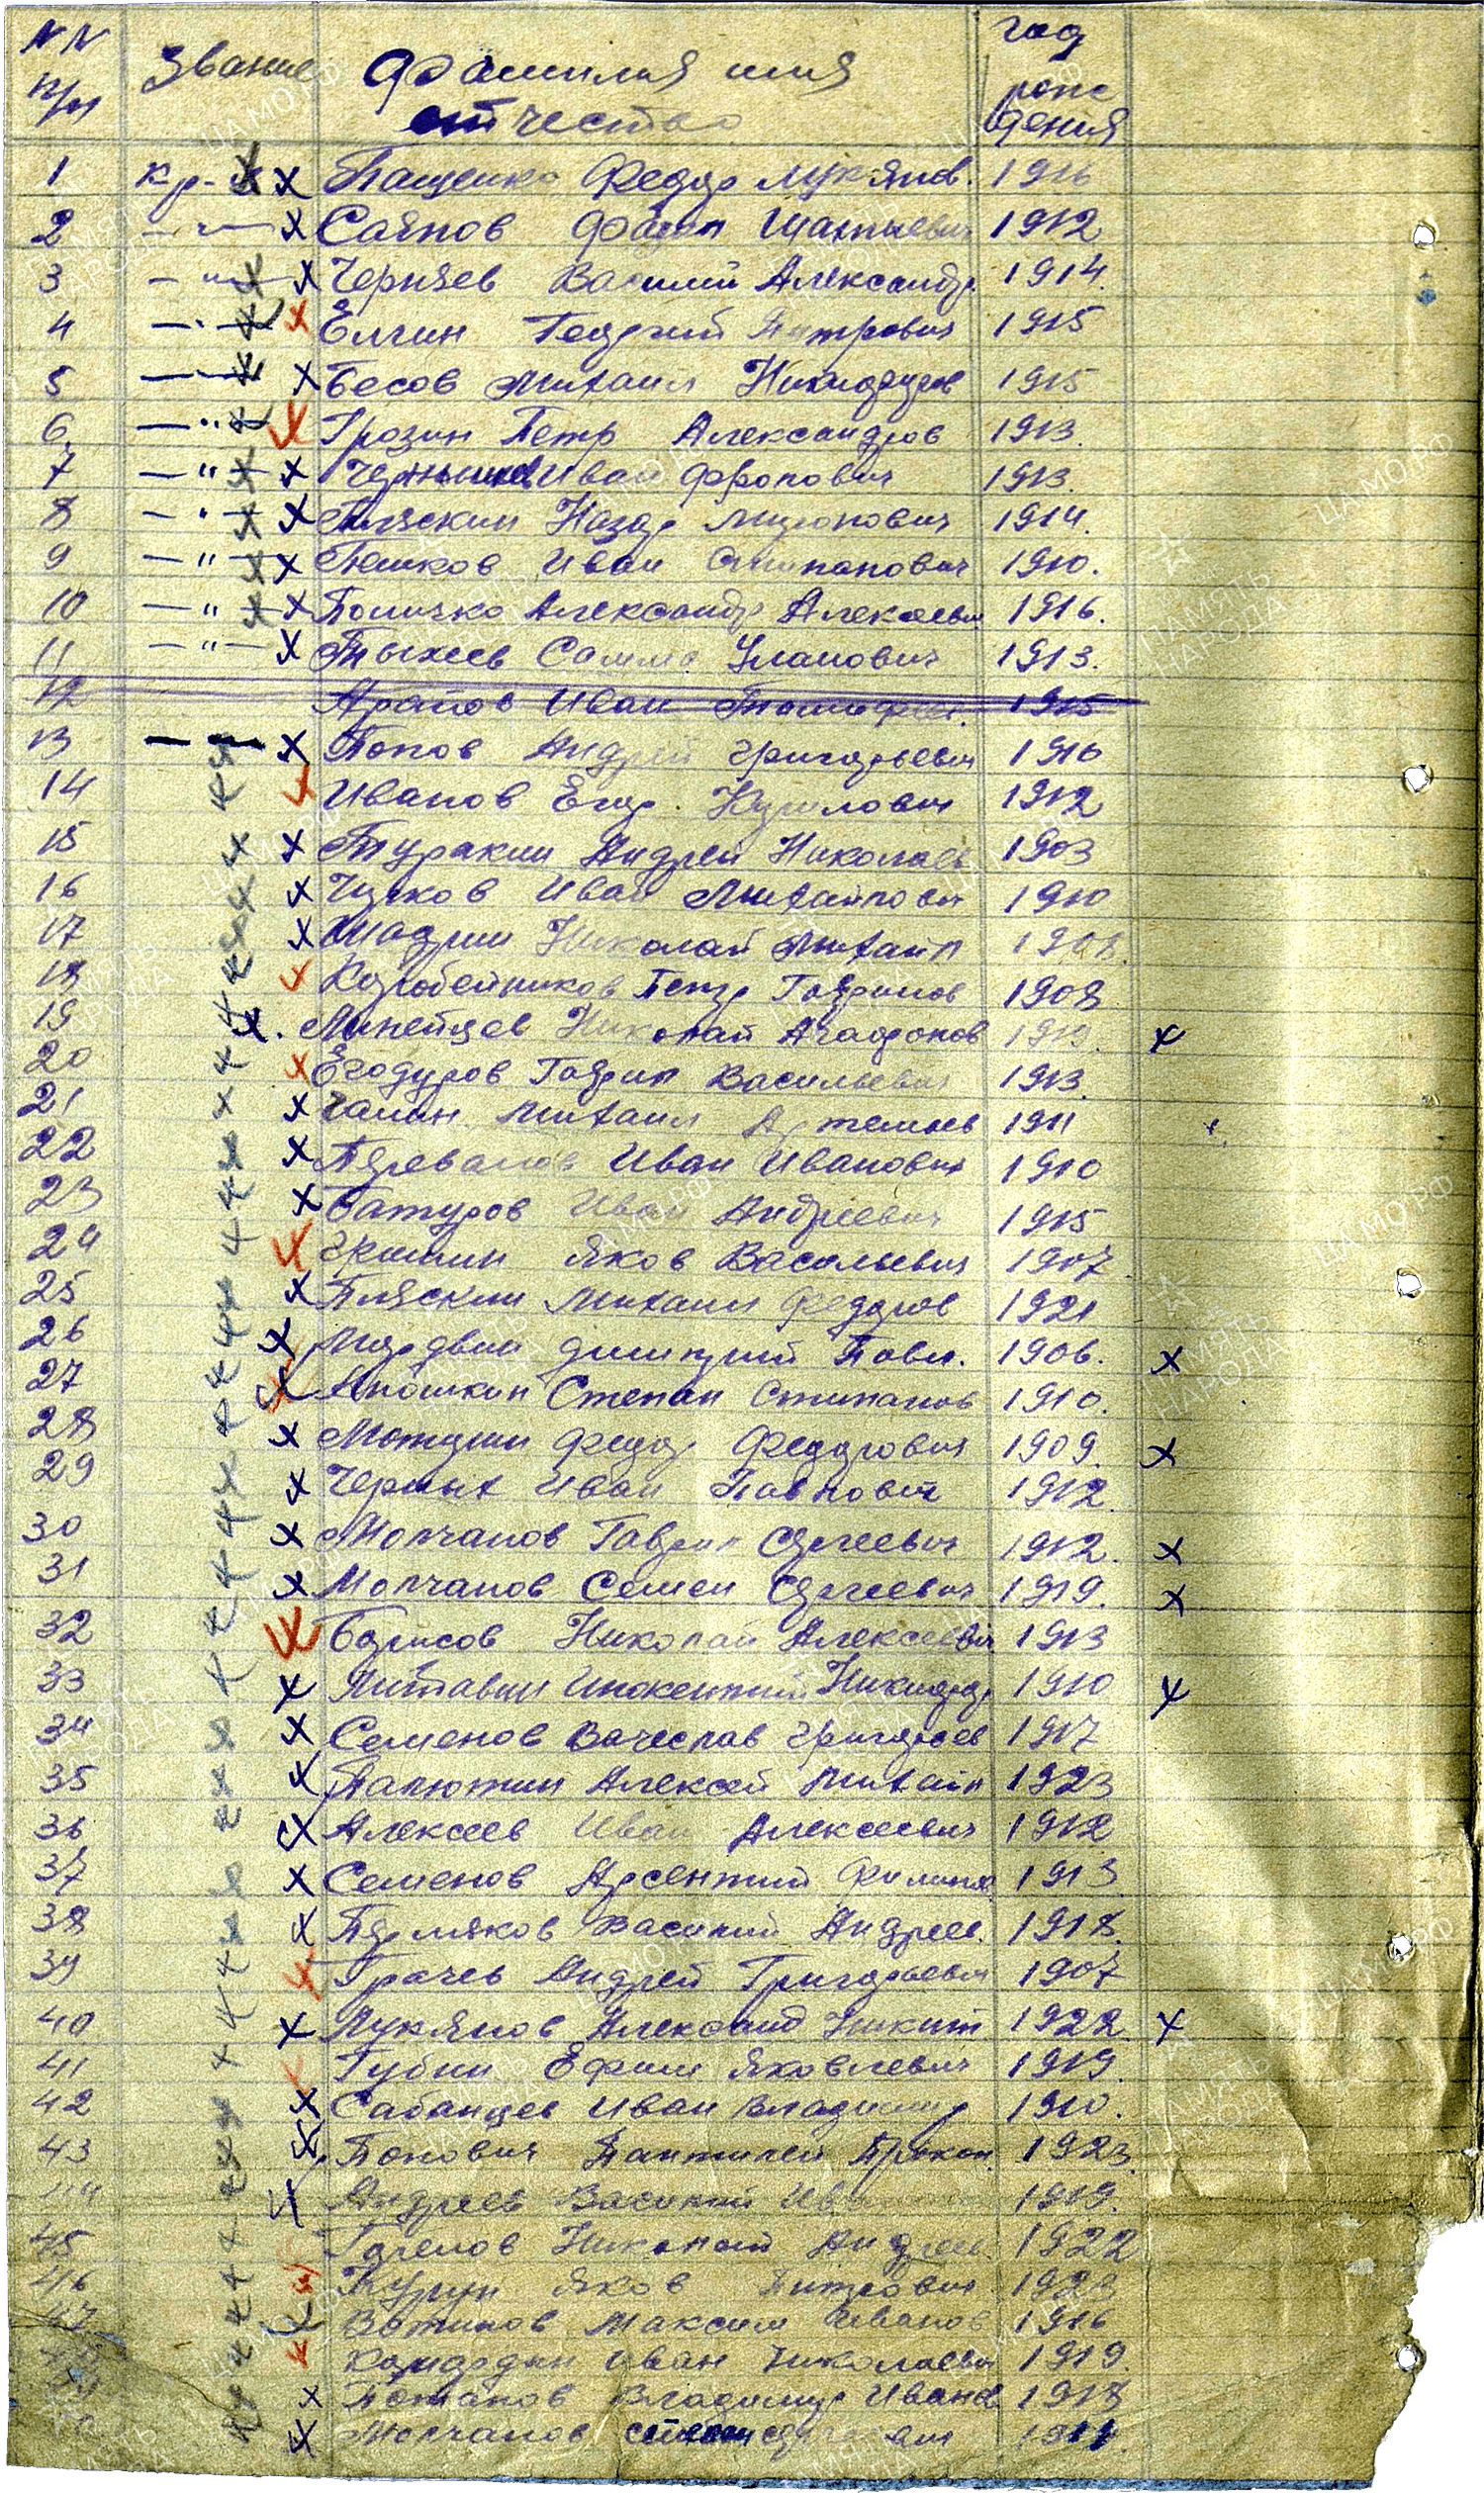 NN п/п Звание Фамилия имя отчество год рождения
1 кр-ц Пащенко Федор Лукянов. 1916
2 -"- Саянов 1912
3 -"- Черняев Василий Александр. 1914.
4 -"- Елчин Георгий Петрович 1915
5 -"- Бесов Михаил Никифоров 1915
6. -"- Грозин Петр Александров 1913.
7 -"- Чернышев Иван Фролович 1913.
8 -"- Пляскин Назар Миронович 1914.
9 -"- Пешков Иван Степанович 1910.
10 -"- Александр Алексеевич 1916.
11 -"- Тыхеев Уланович 1913.
12 Аратов Иван Тимофеев. 1915
13 -"- Попов Андрей Григорьевич 1916
14 Иванов Егор Кирилович 1912
15 Туракин Андрей Николаев 1903
16 Чупков Иван Михайлович 1910
17 Шадрин Николай Михаил
18 Коробейников Петр Гаврилов 1908
19 Линейцев Николай Агафонов 1913.
20 Егодуров Гаврил Васильевич 1913.
21 Чапин Михаил Артемьев 1911
22 Перевалов Иван Иванович 1910
23 Батуров Иван Андреевич 1915
24 Гришин Яков Васильевич 1907
25 Пляскин Михаил Федоров 1921
26 Мордвин Димитрий Павл. 1906.
27 Аношкин Степан Степанов 1910.
28 Матушин Федор Федорович 1909.
29 Черных Иван Павлович 1912.
30 Молчанов Гаврил Сергеевич 1912.
31 Молчанов Семен Сергеевич 1919.
32 Борисов Николай Алексеевич 1913
33 Литавин Инокентий Никифор 1910
34 Семенов Вачеслав Григорьев 1917
35 Палютин Алексей Михайл 1923
36 Алексеев Иван Алексеевич 1912
37 Семенов Арсентий Филипов 1913
38 Пермяков Василий Андреев. 1918.
39 Грачев Андрей Григорьевич 1907
40 Лукянов Александ Никит 1922
41 Губин Ефим Яковлевич 1919.
42 Сабанцев Иван Владимир 1910.
43 Попович Пантилей Прокоп. 1923
44 Андреев Василий 1919.
45 Николай Андреев. 1922
46 Яков Питрович 1923
47 Вотинов Максим Иванов 1916
Иван Николаевич 1919.
Потапов Владимир Иванов 1918
Молчанов Степан Сергеевич